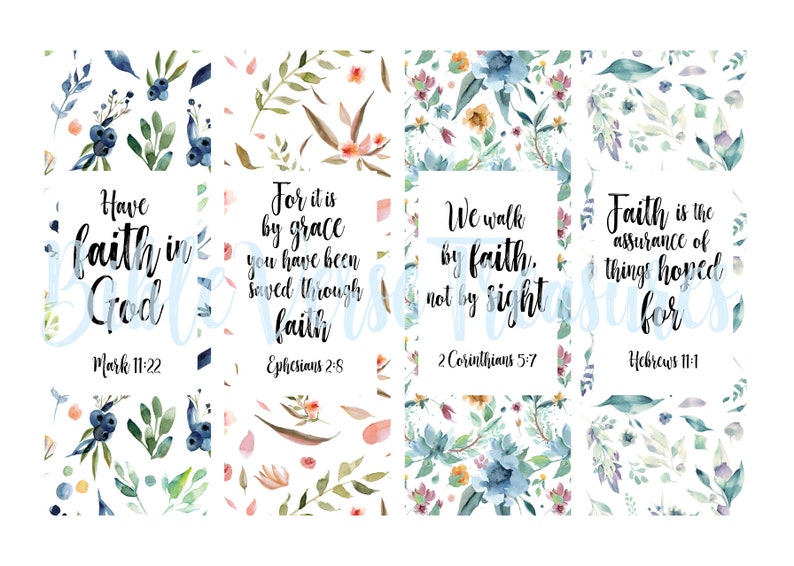 Have
faith in
God
Mark 11:22
For it is
by grace
you have been
saved through
faith
Ephesians 2:8
We walk
by faith,
not by sight
2 Corinthians 5:7
Faith is the
assurance of
things hoped
for
Hebrews 11:1
Bible Verse Treasures